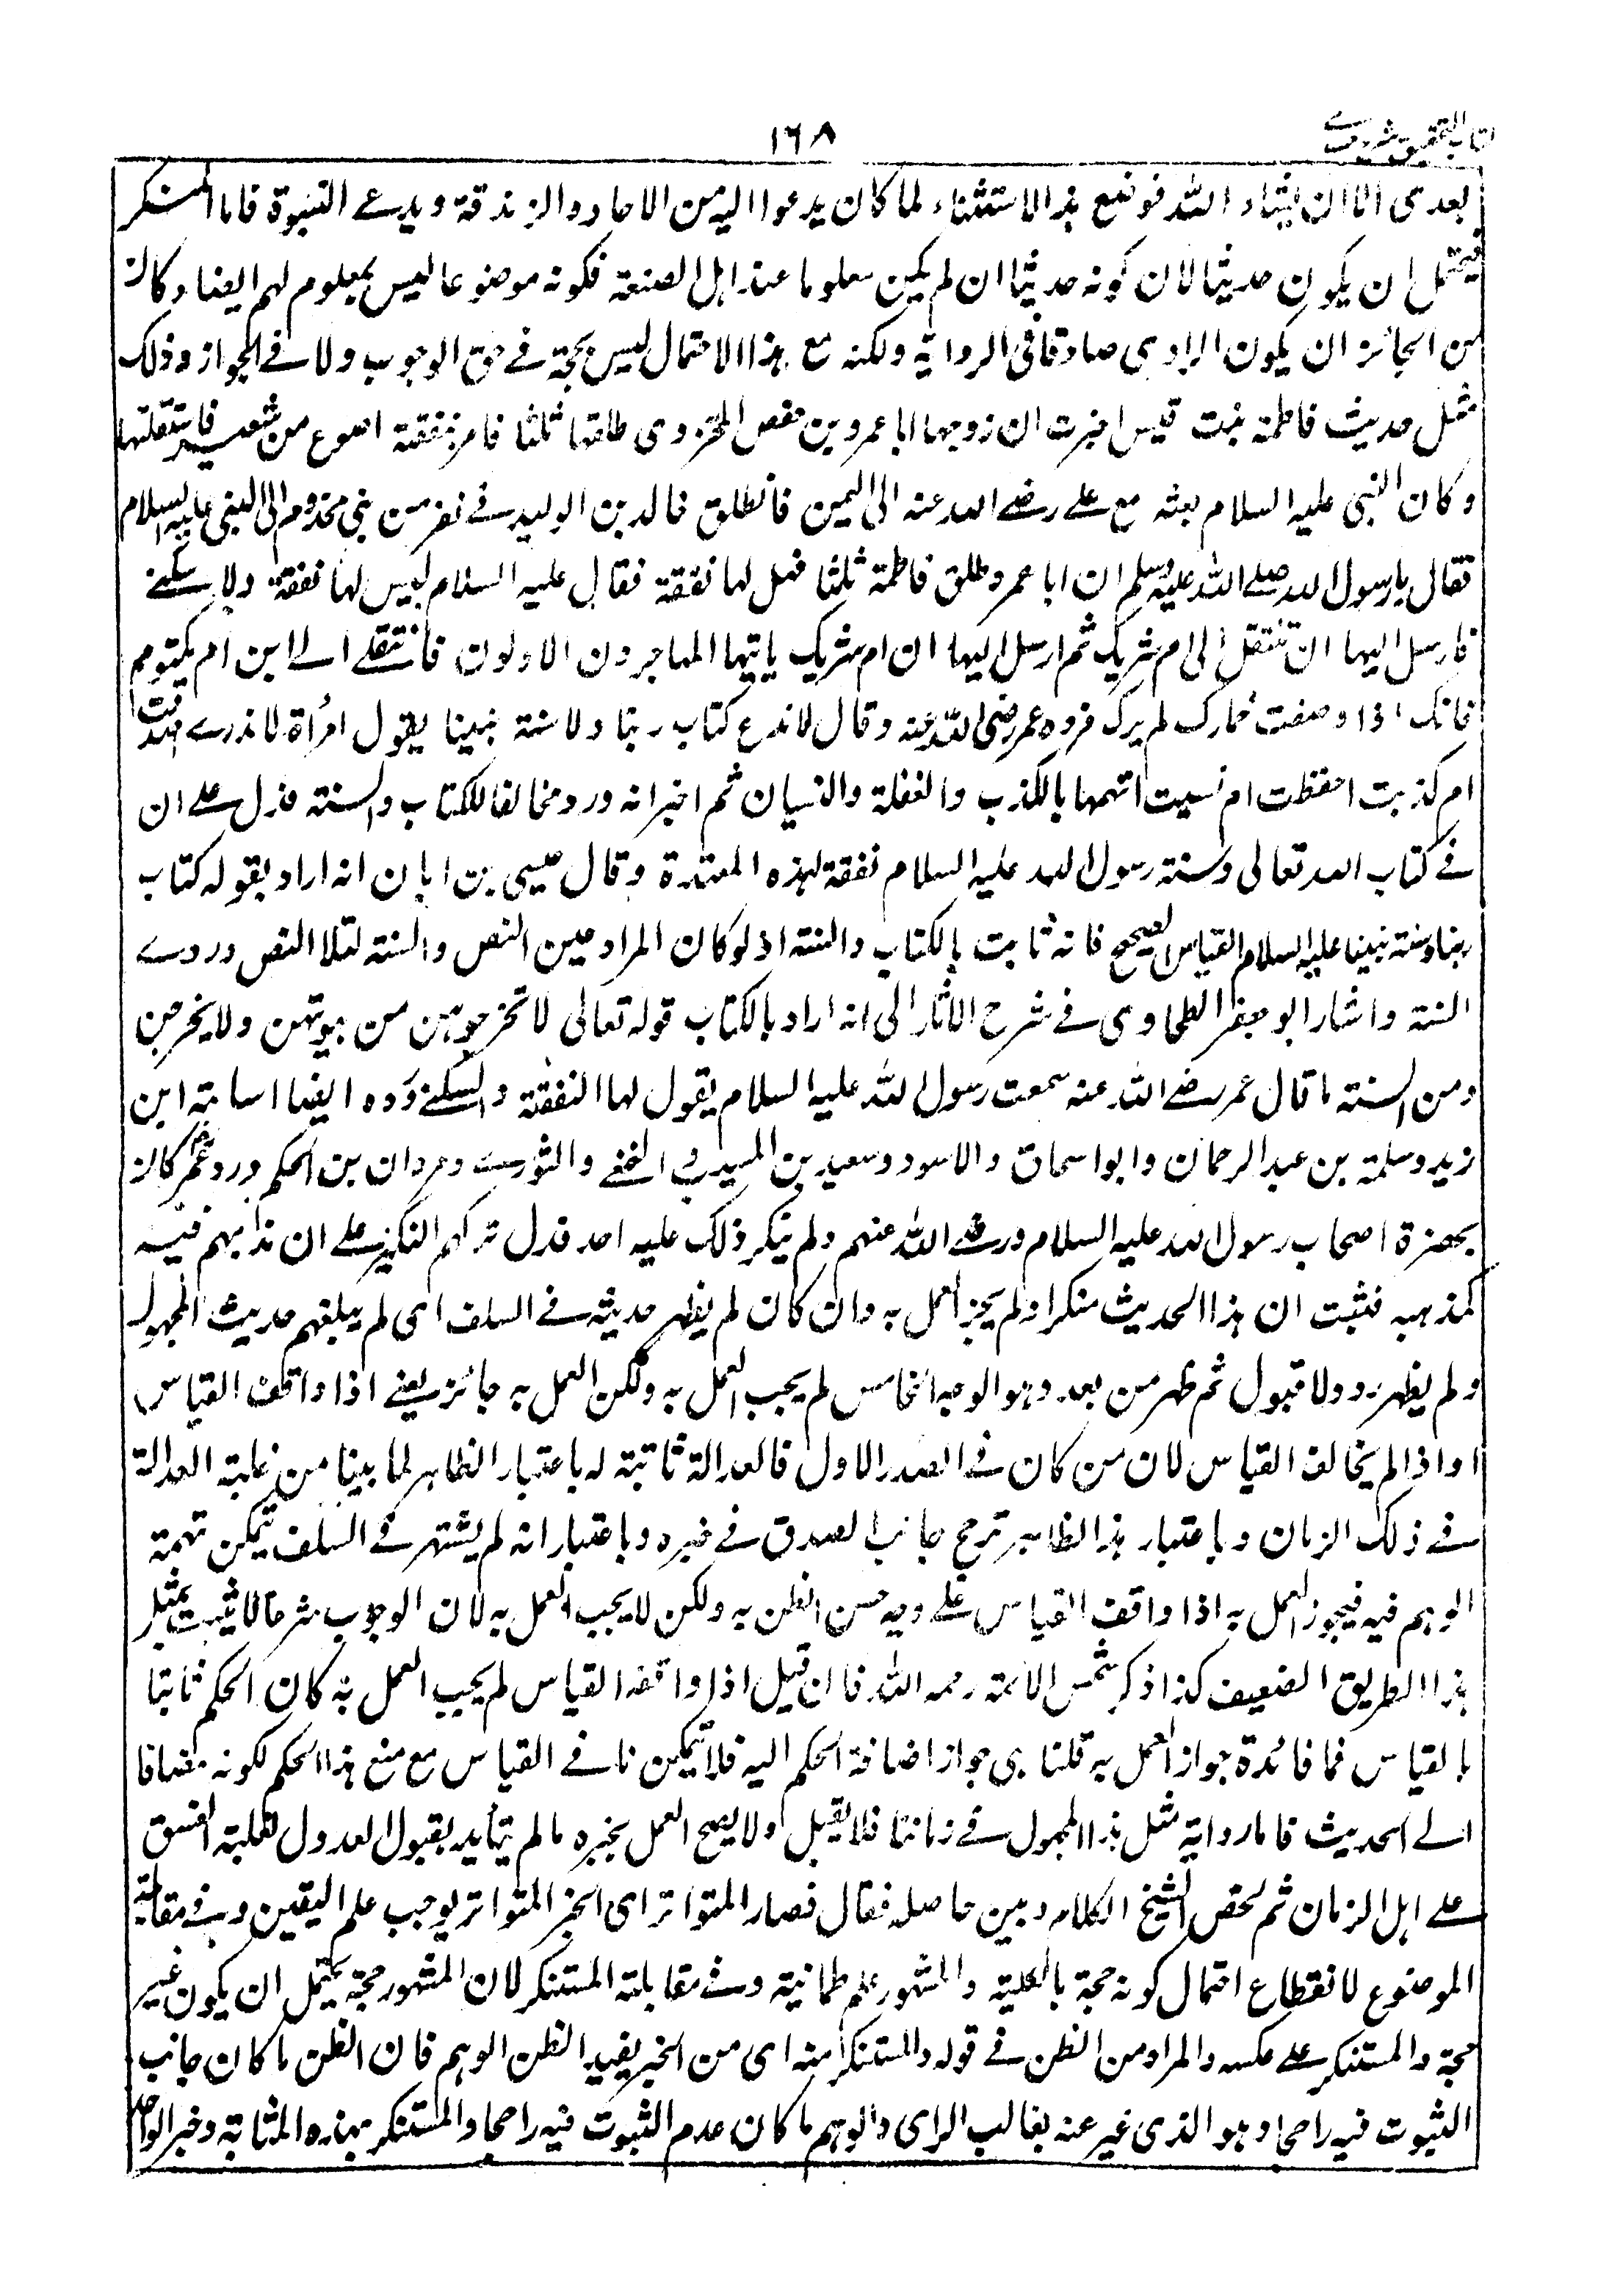 كتاب التحقيق شرح
١٦٨
بعدى الا ان يشاء الله فوضع هذا الاستثناء لما كان يدعوا اليه من الالحاد والزندقة ويدعى النبوة فاما المستنكر
فيحتمل ان يكون حديثا لان كونه حديثا ان لم يكن معلوما عند اهل الصنعة فكونه موضوعا ليس بمعلوم لهم ايضا وكان
من الجائز ان يكون الراوى صادقا فى الرواية ولكنه مع هذا الاحتمال ليس بحجة فى حق الوجوب ولا فى الجواز وذلك
مثل حديث فاطمة بنت قيس اخبرت ان زوجها ابا عمرو بن حفص المخزومى طلقها ثلثا فامر بنفقة اصوع من شعير فاستقلتها
وكان النبى عليه السلام بعثه مع على رضى الله عنه الى اليمن فانطلق خالد بن الوليد فى نفر من بنى مخذوم الى النبى عليه السلام
فقال يا رسول الله صلى الله عليه وسلم ان ابا عمرو طلق فاطمة ثلثا فهل لها نفقة فقال عليه السلام ليس لها نفقة ولا سكنى
فارسل اليها ان تنتقل الى ام شريك ثم ارسل اليها ان ام شريك ياتيها المهاجرون الاولون فانتقلى الى ابن ام مكتوم
فانك اذا وضعت خمارك لم يرك فرده عمر رضى الله عنه وقال لا ندع كتاب ربنا ولا سنة نبينا بقول امرأة لا ندرى اصدقت
ام كذبت احفظت ام نسيت اتهمها بالكذب والغفلة والنسيان ثم اخبر انه ورد مخالفا للكتاب والسنة فدل على ان
فى كتاب الله تعالى وسنة رسول الله عليه السلام نفقة لهذه المعتدة وقال عيسى بن ابان انه اراد بقوله كتاب
ربنا وسنة نبينا عليه السلام القياس الصحيح فانه ثابت بالكتاب والسنة اذ لو كان المراد عين النص والسنة لتلا النص وروى
السنة واشار ابو جعفر الطحاوى فى شرح الاثار الى انه اراد بالكتاب قوله تعالى لا تخرجوهن من بيوتهن ولا يخرجن
ومن السنة ما قال عمر رضى الله عنه سمعت رسول الله عليه السلام يقول لها النفقة والسكنى ورده ايضا اسامة ابن
زيد وسلمة بن عبد الرحمان وابو اسحاق والاسود وسعيد بن المسيب والنخعى والثورى ومروان بن الحكم ورد عمر كان
بحضرة اصحاب رسول الله عليه السلام ورضى الله عنهم ولم ينكر ذلك عليه احد فدل تركهم النكير على ان مذهبهم فيه
كمذهبه فثبت ان هذا الحديث منكرا ولم يجز العمل به وان كان لم يظهر حديثه فى السلف اى لم يبلغهم حديث المجهول
ولم يظهر رد ولا قبول ثم ظهر من بعد وهو الوجه الخامس لم يجب العمل به ولكن العمل به جائز يعنى اذا وافق القياس
او اذا لم يخالف القياس لان من كان فى الصدر الاول فالعدالة ثابتة له باعتبار الظاهر لما بينا من غلبة العدالة
فى ذلك الزمان وباعتبار هذا الظاهر ترجح جانب الصدق فى خبره وباعتبار انه لم يشتهر فى السلف يمكن تهمة
الوهم فيه فيجوز العمل به اذا وافق القياس على وجه حسن الظن به ولكن لا يجب العمل به لان الوجوب شرعا لا يثبت بمثل
هذا الطريق الضعيف كذا ذكر شمس الائمة رحمه الله فان قيل اذا وافقه القياس لم يجب العمل به كان الحكم ثابتا
بالقياس فما فائدة جواز العمل به قلنا هى جواز اضافة الحكم اليه فلا يتمكن نافى القياس مع منع هذا الحكم لكونه مضافا
الى الحديث فاما رواية مثل هذا المجهول فى زماننا فلا يقبل ولا يصح العمل بخبره ما لم يتأيد بقبول العدول لغلبة الفسق
على اهل الزمان ثم لخص الشيخ الكلام وبين حاصله فقال فصار المتواتر اى الخبر المتواتر يوجب علم اليقين وفى مقابلة
الموضوع لانقطاع احتمال كونه حجة بالكلية والمشهور علم طمانية وفى مقابلة المستنكر لان المشهور حجة يحتمل ان يكون غير
حجة والمستنكر على عكسه والمراد من الظن فى قوله والمستنكر منه اى من الخبر يفيد الظن الوهم فان الظن ما كان جانب
الثبوت فيه راجحا وهو الذى عبر عنه بغالب الراى والوهم ما كان عدم الثبوت فيه راجحا والمستنكر بهذه المثابة وخبر الواحد